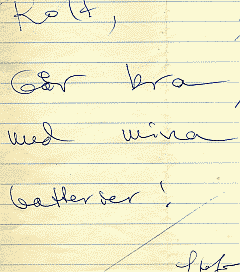 Rolf,
Går bra
med mina
batterier!